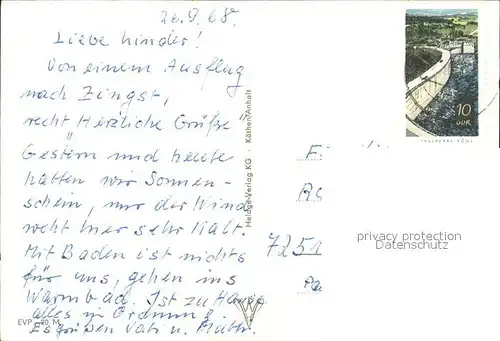 20.9.68.
Liebe Kinder!
Von einem Ausflug
nach Zingst,
recht Herzliche Grüße
Gestern und heute
hatten wir Sonnen-
schein, nur der Wind
weht hier sehr kalt.
Mit Baden ist nichts
für uns, gehen ins
Warmbad. Ist zu Hause
alles in Ordnung.
Es grüßen Vati u. Mutti.
EVP -,20 M
Heldge-Verlag KG · Köthen/Anhalt
10
DDR
TALSPERRE PÖHL
7251
privacy protection
Datenschutz